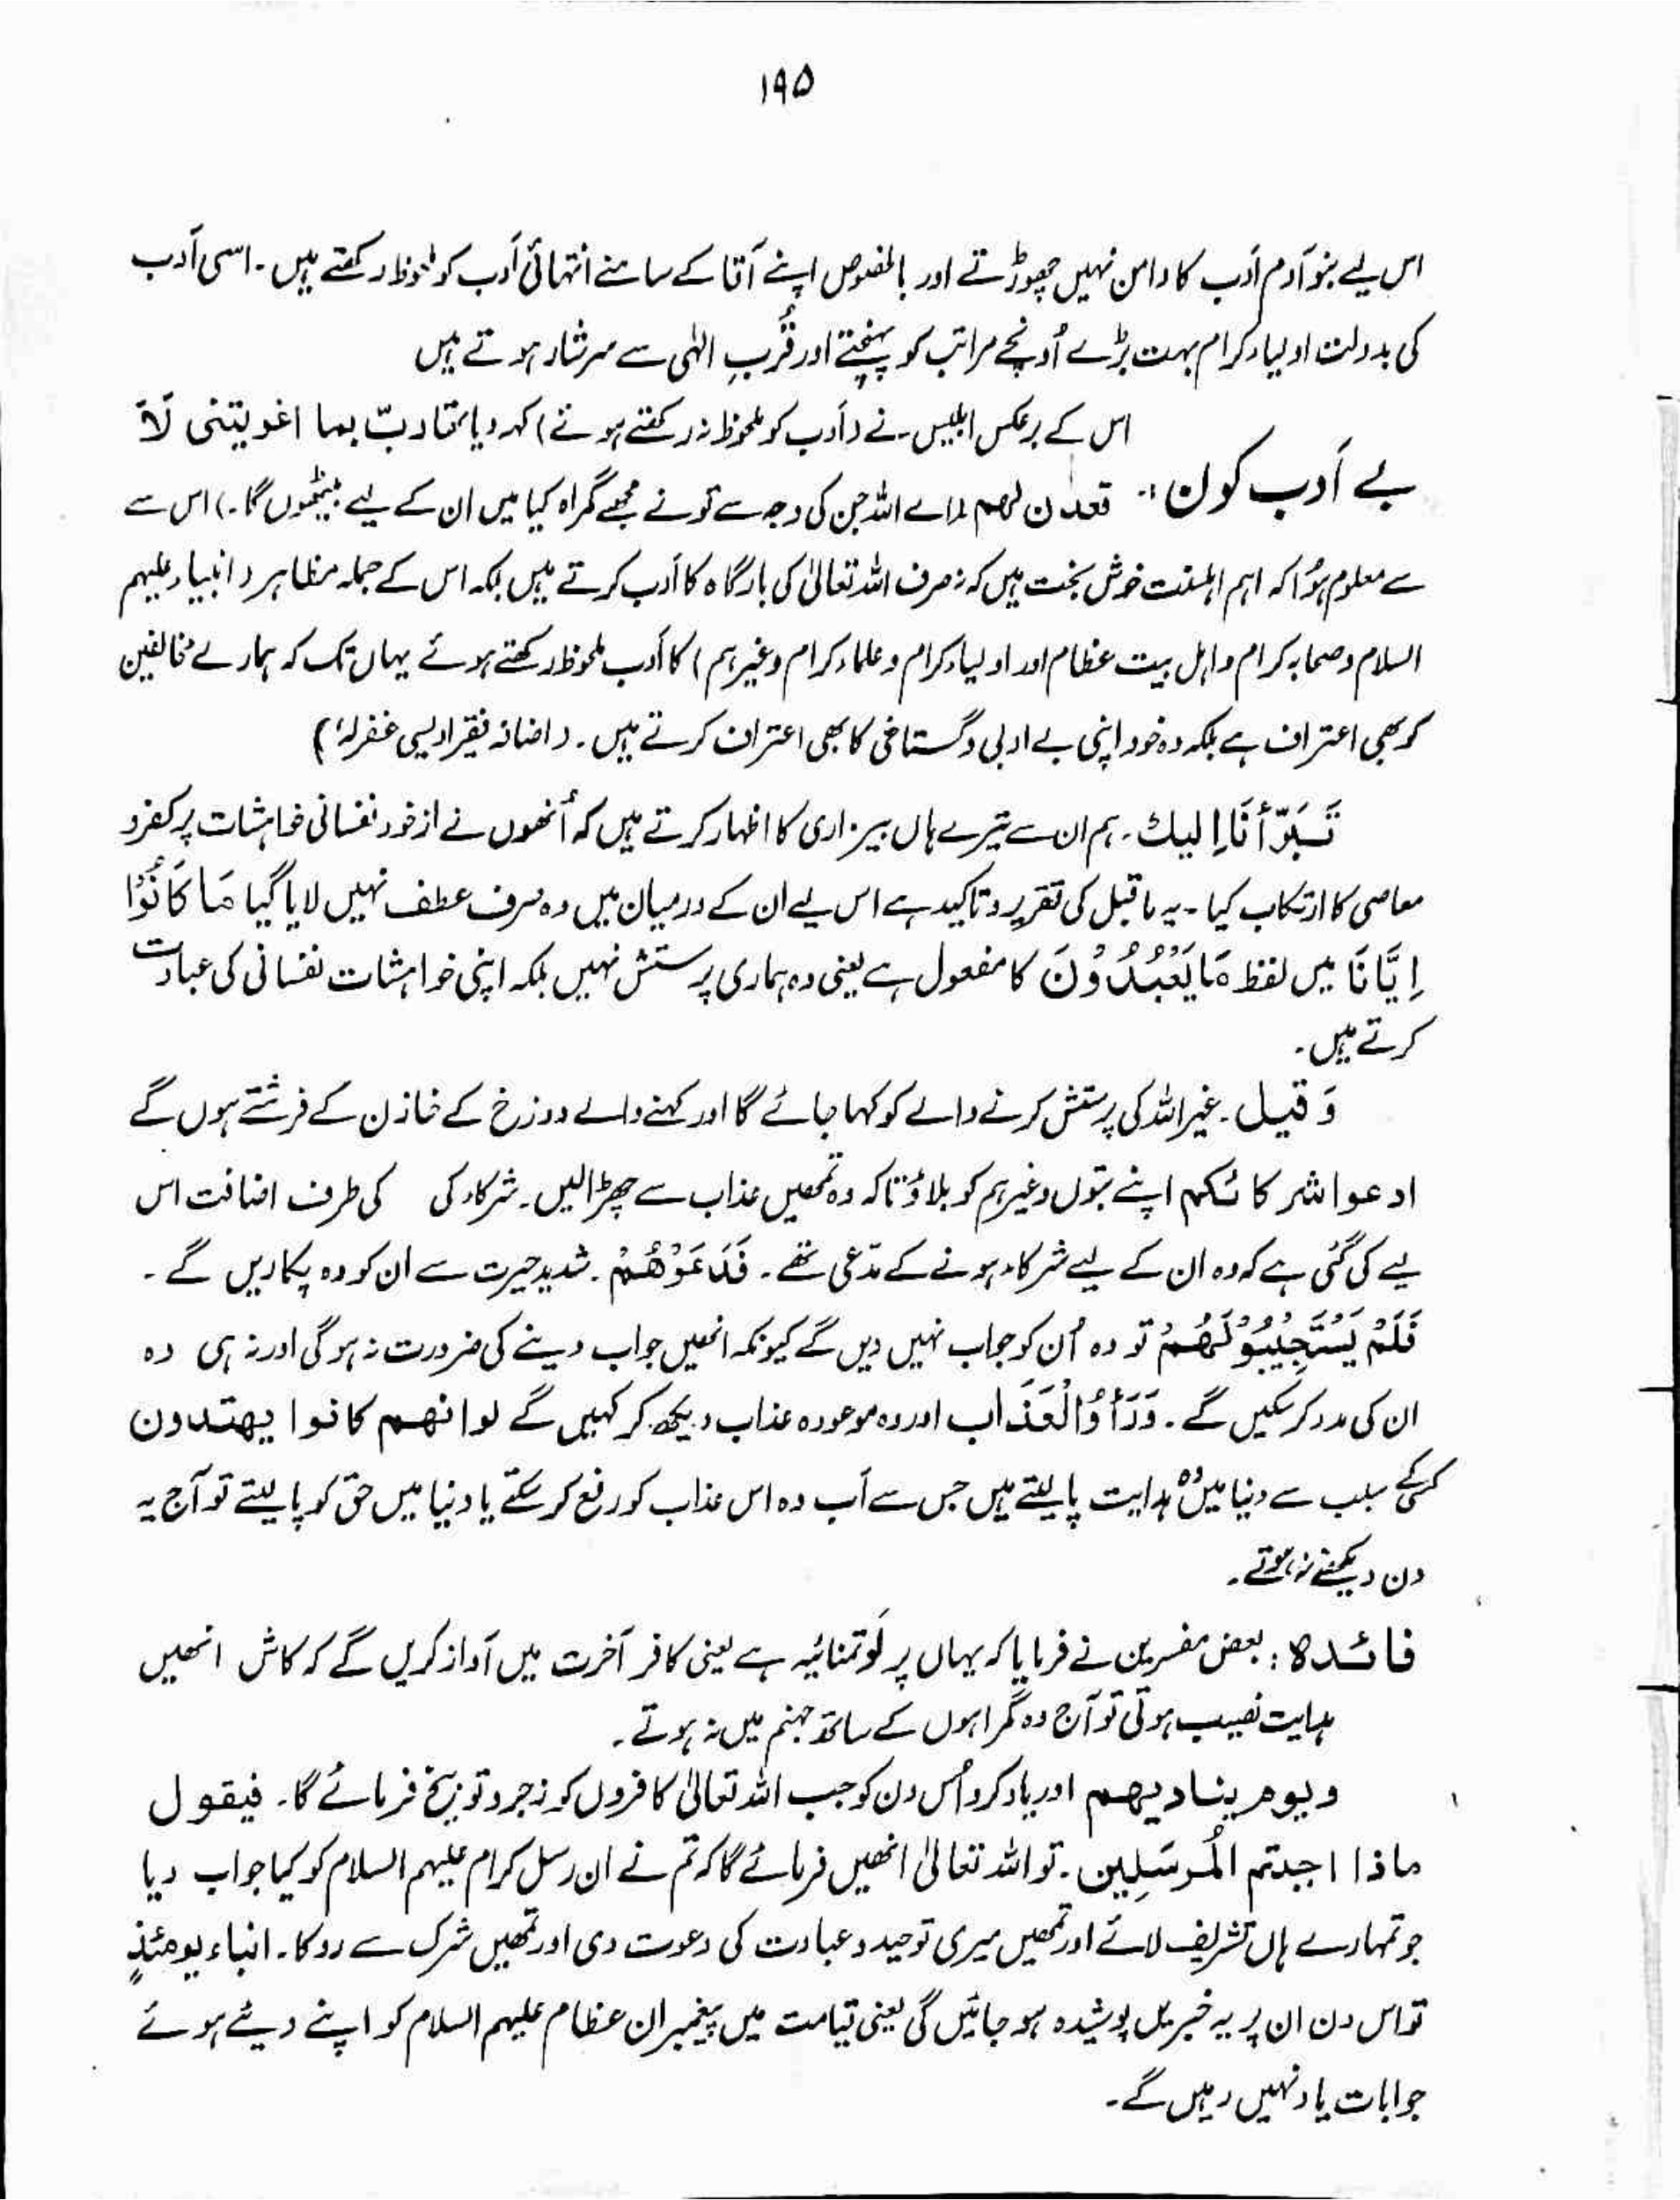 ۱۹۵
اس لیے بنو آدم اَدب کا دامن نہیں چھوڑتے اور بالخصوص اپنے آقا کے سامنے انتہائی اَدب کو ملحوظ رکھتے ہیں۔ اسی اَدب
کی بدولت اولیاء کرام بہت بڑے اُونچے مراتب کو پہنچتے اور قُربِ الٰہی سے سرشار ہوتے ہیں
اس کے برعکس ابلیس نے (اَدب کو ملحوظ نہ رکھتے ہوئے) کہہ دیا تھا ربّ بما اغویتنی لَاَ
بے اَدب کون:۔ قعدن لہم (اے اللہ جن کی وجہ سے تو نے مجھے گمراہ کیا میں ان کے لیے بیٹھوں گا۔) اس سے
سے معلوم ہوُا کہ اہم اہلسنت خوش بخت ہیں کہ نہ صرف اللہ تعالیٰ کی بارگاہ کا اَدب کرتے ہیں بلکہ اس کے جملہ مظاہر (انبیاء علیہم
السلام و صحابہ کرام و اہل بیت عظام اور اولیاء کرام و علماء کرام وغیرہم) کا اَدب ملحوظ رکھتے ہوئے یہاں تک کہ ہمارے مخالفین
کو بھی اعتراف ہے بلکہ وہ خود اپنی بے ادبی و گستاخی کا بھی اعتراف کرتے ہیں۔ (اضافہ فقیر اویسی غفرلہٗ)
تَبَرَّأنَا إليك۔ ہم ان سے تیرے ہاں بیزاری کا اظہار کرتے ہیں کہ اُنھوں نے ازخود نفسانی خواہشات پر کفر و
معاصی کا ارتکاب کیا۔ یہ ماقبل کی تقریر و تاکید ہے اس لیے ان کے درمیان میں وہ حرف عطف نہیں لایا گیا مَا کَانُوْٓا
اِیَّانَا میں لفظ مَا یَعْبُدُوْنَ کا مفعول ہے یعنی وہ ہماری پرستش نہیں بلکہ اپنی خواہشات نفسانی کی عبادت
کرتے ہیں۔
وَ قیل۔ غیراللہ کی پرستش کرنے والے کو کہا جائے گا اور کہنے والے دوزخ کے خازن کے فرشتے ہوں گے
ادعوا شرکائکم اپنے بتوں وغیرہم کو بلاؤ تاکہ وہ تمھیں عذاب سے چھڑا لیں۔ شرکاء کی کی طرف اضافت اس
لیے کی گئی ہے کہ وہ ان کے لیے شرکاء ہونے کے مدّعی تھے۔ فَدَعَوْھُمْ۔ شدید حیرت سے ان کو وہ پکاریں گے۔
فَلَمْ یَسْتَجِیْبُوْ لَہُمْ تو وہ اُن کو جواب نہیں دیں گے کیونکہ انھیں جواب دینے کی ضرورت نہ ہوگی اور نہ ہی وہ
ان کی مدد کر سکیں گے۔ وَرَأَوُا لْعَذَاب اور وہ موعودہ عذاب دیکھ کر کہیں گے لوانھم کانوا یھتدون
کسی کے سبب سے دنیا میں وہ ہدایت پا لیتے ہیں جس سے اَب وہ اس عذاب کو رفع کر سکتے یا دنیا میں حق کو پا لیتے تو آج یہ
دن دیکھنے نہ ہوتے۔
فائدہ: بعض مفسرین نے فرمایا کہ یہاں پر لَو تمنائیہ ہے یعنی کافر آخرت میں آواز کریں گے کہ کاش انھیں
ہدایت نصیب ہوتی تو آج وہ گمراہوں کے ساتھ جہنم میں نہ ہوتے۔
ویوم ینادیھم اور یاد کرو اُس دن کو جب اللہ تعالیٰ کافروں کو زجر و توبیخ فرمائے گا۔ فیقول
ماذا اجبتم المُرسَلِین۔ تو اللہ تعالیٰ انھیں فرمائے گا کہ تم نے ان رسل کرام علیہم السلام کو کیا جواب دیا
جو تمہارے ہاں تشریف لائے اور تمھیں میری توحید و عبادت کی دعوت دی اور تمھیں شرک سے روکا۔ انباء یومئذٍ
تو اس دن ان پر یہ خبریں پوشیدہ ہو جائیں گی یعنی قیامت میں پیغمبران عظام علیہم السلام کو اپنے دیئے ہوئے
جوابات یاد نہیں رہیں گے۔